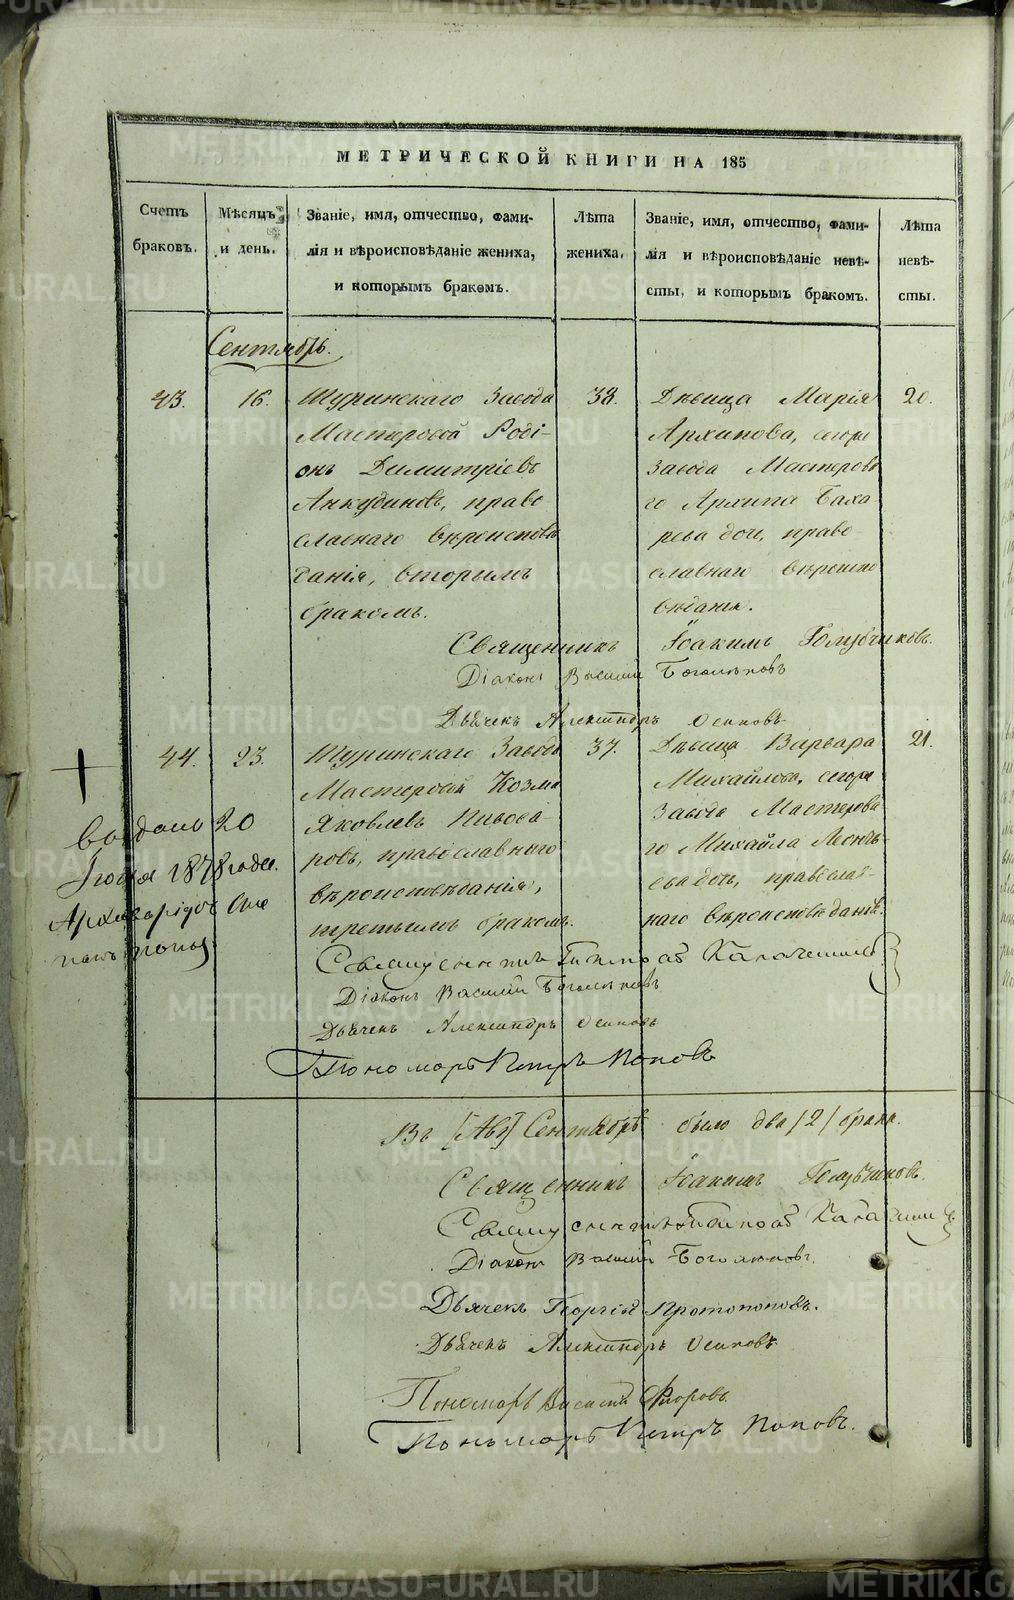 МЕТРИЧЕСКОЙ КНИГИ НА 185
Счетъ браковъ.
Мѣсяцъ и день.
Званіе, имя, отчество, фами-
лія и вѣроисповѣданіе жениха,
и которымъ бракомъ.
Лѣта жениха.
Званіе, имя, отчество, фами-
лія и вѣроисповѣданіе невѣ-
сты, и которымъ бракомъ.
Лѣта невѣ-
сты.
Сентябрь.
43.
16.
Туринскаго Завода
Мастеровой Роді-
онъ Димитріевъ
Анкудиновъ, право
славнаго вѣроисповѣ
данія, вторымъ
бракомъ.
38.
Дѣвица Марія
Архипова, сего же
Завода Мастерова
го Архипа Баха
рева дочь, право-
славнаго вѣроиспо
вѣданія.
20.
Священникъ Іоакимъ Голубчиковъ.
Діаконъ Василій Боголѣповъ
Дьячекъ Александръ Осиповъ
44.
23.
Туринскаго Завода
Мастеровой Козма
Яковлевъ Пивова-
ровъ, православнаго
вѣроисповѣданія,
третьимъ бракомъ.
37.
Дѣвица Варвара
Михайлова, сего же
Завода Мастерова-
го Михайла
дочь, православ-
наго вѣроисповѣданія.
21.
Выдано 20
1878 года.
Священникъ
Діаконъ Василій Боголѣповъ
Дьячекъ Александръ Осиповъ
Пономарь Петръ Поповъ
Въ Сентябрѣ было два /2/ брака.
Священникъ Іоакимъ Голубчиковъ.
Священникъ
Діаконъ Василій Боголѣповъ.
Дьячекъ Георгій Протопоповъ.
Дьячекъ Александръ Осиповъ
Пономарь Василій Флоровъ.
Пономарь Петръ Поповъ.
METRIKI.GASO-URAL.RU